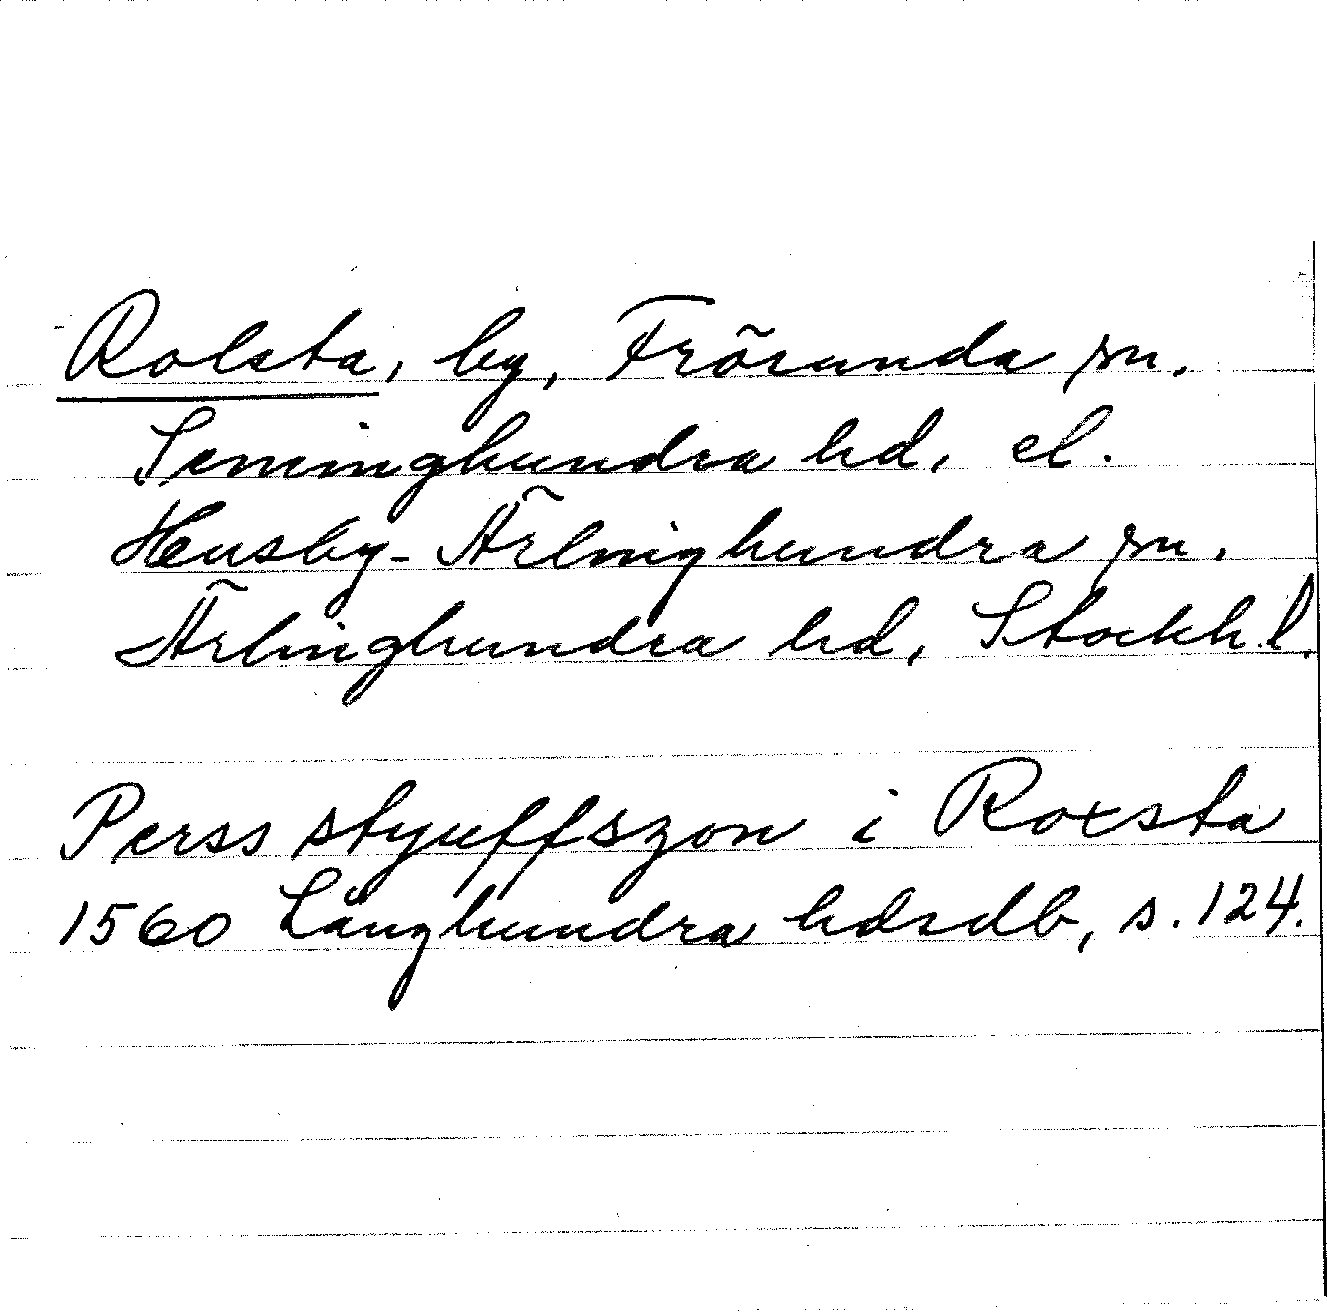 Rolsta, by, Frösunda sn.
Seminghundra hd, el.
Husby-Ärlinghundra sn.
Ärlinghundra hd, Stockh.l.
Perss styuffszon i Roxsta
1560 Långhundra hdsdb, s. 124.